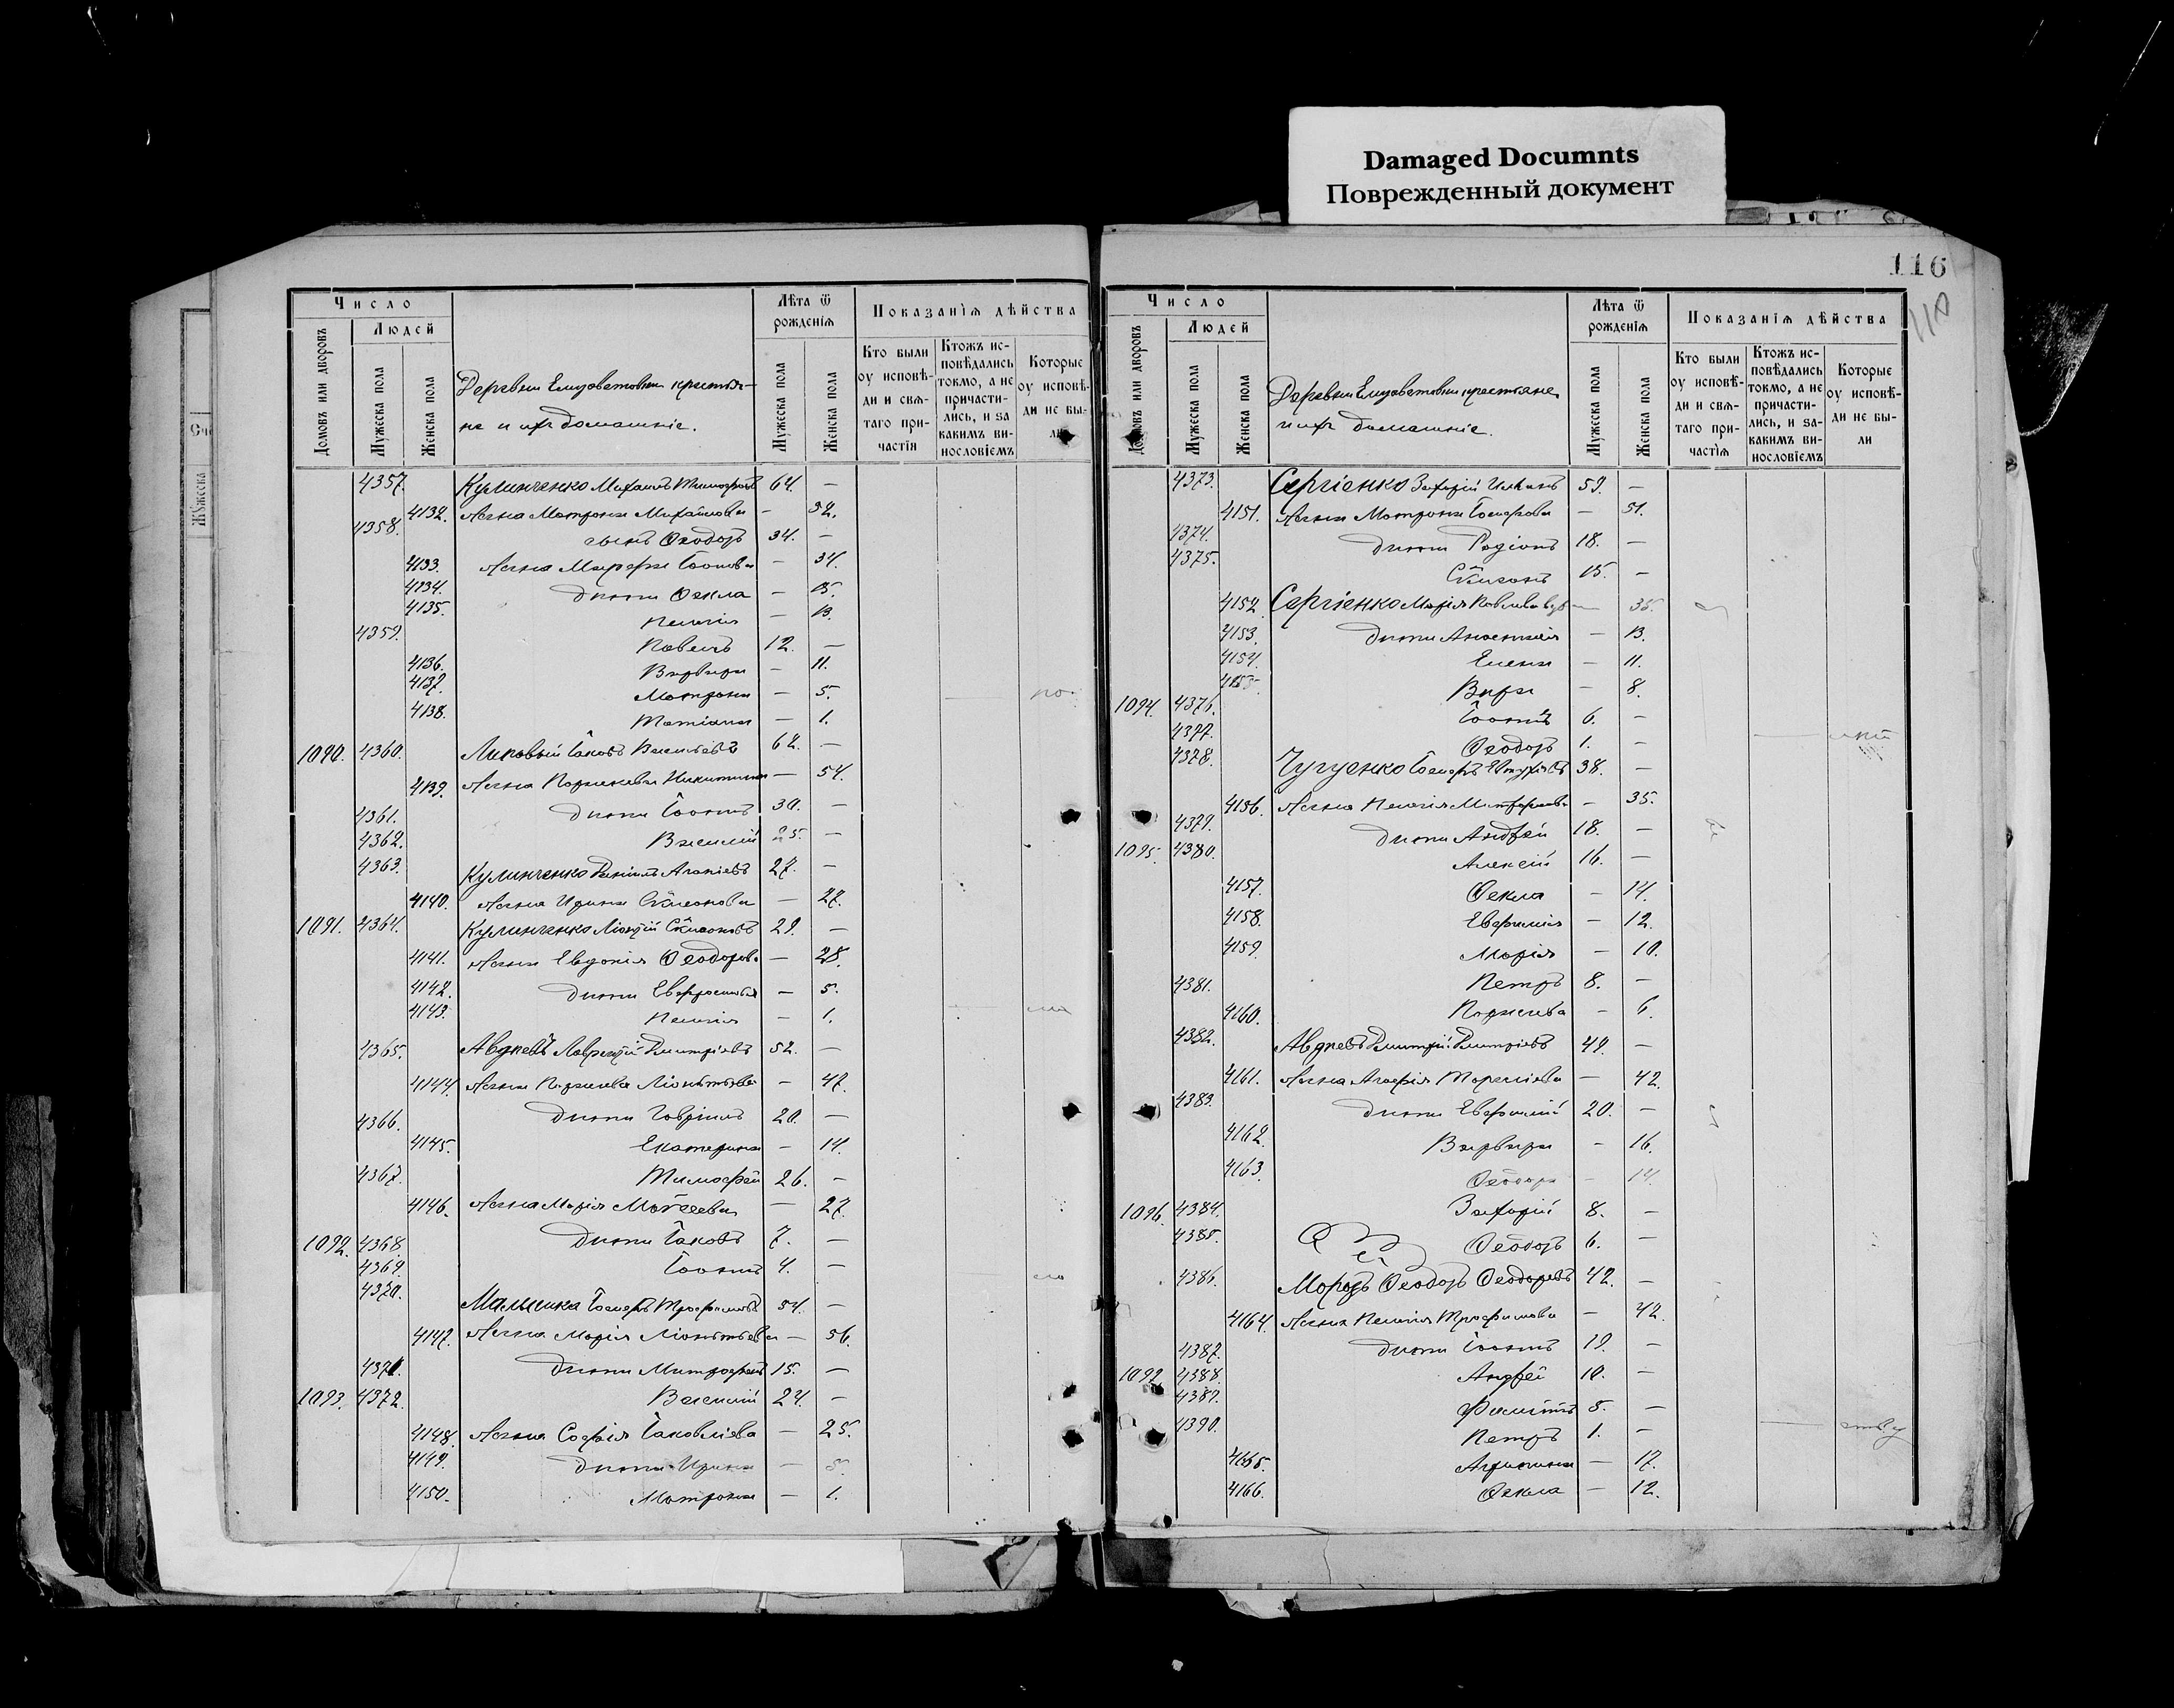 Damaged Documnts
Поврежденный документ
116
Число
Людей
Домовъ или дворовъ
Мужеска пола
Женска пола
Деревни Елизаветовки крестья-
не и ихъ домашніе.
Лѣта ѿ рожденія
Мужеска пола
Женска пола
Показанія дѣйства
Кто были оу исповѣ-ди и свя-таго при-частія
Ктожъ ис-повѣдались токмо, а не причасти-лись, и за какимъ ви-нословіемъ
Которые оу исповѣ-ди не бы-ли
4357. Кулинченко Михаилъ Тимофеевъ 64. —
4132. Жена Матрона Михайлова — 52.
4358. сынъ Ѳеодоръ 34. —
4133. Жена Марфа Іоанова — 34.
4134. Дѣти Ѳекла — 15.
4135. Пелагія — 13.
4359. Павелъ 12. —
4136. Варвара — 11.
4137. Матрона — 5.
4138. Татіана — 1.
1090. 4360. Липовый Іаковъ Васильевъ 62. —
4139. Жена Параскева Никитина — 54.
4361. Дѣти Іоаннъ 30. —
4362. Василій 25. —
4363. Кулинченко Даніилъ Агапіевъ 27. —
4140. Жена Ирина Сѵмеонова — 27.
1091. 4364. Кулинченко Сѵмеоновъ 29. —
4141. Жена Евдокія Ѳеодоров. — 28.
4142. Дѣти Евфросинія — 5.
4143. Пелагія — 1.
4365. Авдѣевъ Лаврентій Дмитріевъ 52. —
4144. Жена Параскева Леонтьева — 47.
4366. Дѣти Гавріилъ 20. —
4145. Екатерина — 14.
4367. Тимофей 26. —
4146. Жена Марія Моѵсеева — 27.
1092. 4368. Дѣти Іаковъ 7. —
4369. Іоаннъ 4. —
4370. Малышка Іосифъ Трофимовъ 54. —
4147. Жена Марія Леонтьева — 56.
4371. Дѣти Митрофанъ 15. —
1093. 4372. Василій 24. —
4148. Жена Софія Іаковлева — 25.
4149. Дѣти Ирина — 5.
4150. Матрона — 1.
Число
Людей
Домовъ или дворовъ
Мужеска пола
Женска пола
Деревни Елизаветовки крестьяне
и ихъ домашніе.
Лѣта ѿ рожденія
Мужеска пола
Женска пола
Показанія дѣйства
Кто были оу исповѣ-ди и свя-таго при-частія
Ктожъ ис-повѣдались токмо, а не причасти-лись, и за какимъ ви-нословіемъ
Которые оу исповѣ-ди не бы-ли
4373. Сергіенко Захарій 59. —
4151. Жена Матрона Іосифова — 51.
4374. Дѣти Родіонъ 18. —
4375. Сѵмеонъ 15. —
4152. Сергіенко Марія Павлова вд. — 35.
4153. Дѣти Анастасія — 13.
4154. Елена — 11.
4155. Вара — 8.
1094. 4376. Іоаннъ 6. —
4377. Ѳеодоръ 1. —
4378. Чугуенко Іосифъ 38. —
4156. Жена Пелагія Митрофанов. — 35.
4379. Дѣти Андрей 18. —
1095. 4380. Алексій 16. —
4157. Ѳекла — 14.
4158. Евфимія — 12.
4159. Марія — 10.
4381. Петръ 8. —
4160. Параскева — 6.
4382. Авдѣевъ Димитрій Димитріевъ 49. —
4161. Жена Агафія — 42.
4383. Дѣти Евфимій 20. —
4162. Варвара — 16.
4163. Ѳеодора — 14.
1096. 4384. Захарій 8. —
4385. Ѳеодоръ 6. —
4386. Морозъ Ѳеодоръ Ѳеодоровъ 42. —
4164. Жена Пелагія Трофимова — 42.
4387. Дѣти Іоаннъ 19. —
1097. 4388. Андрей 10. —
4389. Филиппъ 5. —
4390. Петръ 1. —
4165. Агрипина — 17.
4166. Ѳекла — 12.